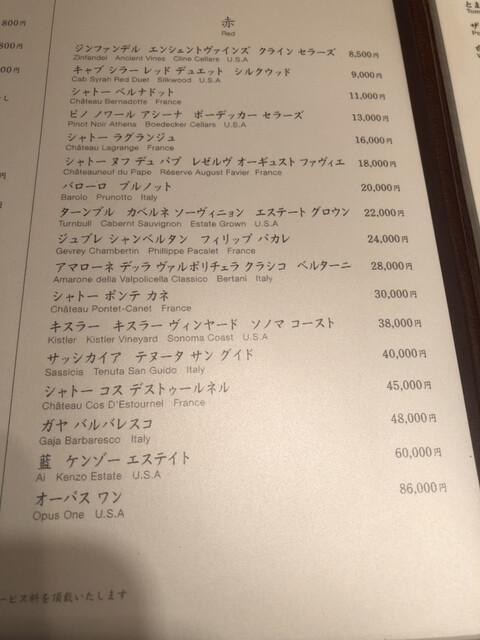 赤
Red
ジンファンデル エンシェントヴァインズ クライン セラーズ 8,500円
Zinfandel Ancient Vines Cline Cellars U.S.A
キャブ シラー レッド デュエット シルクウッド 9,000円
Cab Syrah Red Duet Silkwood U.S.A
シャトー ベルナドット 11,000円
Château Bernadotte France
ピノ ノワール アシーナ ボーデッカー セラーズ 13,000円
Pinot Noir Athena Boedecker Cellars U.S.A
シャトー ラグランジュ 16,000円
Château Lagrange France
シャトー ヌフ デュ パプ レゼルヴ オーギュスト ファヴィエ 18,000円
Châteauneuf du Pape Réserve August Favier France
バローロ プルノット 20,000円
Barolo Prunotto Italy
ターンブル カベルネ ソーヴィニョン エステート グロウン 22,000円
Turnbull Cabernt Sauvignon Estate Grown U.S.A
ジュブレ シャンベルタン フィリップ パカレ 24,000円
Gevrey Chambertin Phillippe Pacalet France
アマローネ デッラ ヴァルポリチェラ クラシコ ベルターニ 28,000円
Amarone della Valpolicella Classico Bertani Italy
シャトー ポンテ カネ 30,000円
Château Pontet-Canet France
キスラー キスラー ヴィンヤード ソノマ コースト 38,000円
Kistler Kistler Vineyard Sonoma Coast U.S.A
サッシカイア テヌータ サン グイド 40,000円
Sassicia Tenuta San Guido Italy
シャトー コス デストゥールネル 45,000円
Château Cos D'Estournel France
ガヤ バルバレスコ 48,000円
Gaja Barbaresco Italy
藍 ケンゾー エステイト 60,000円
Ai Kenzo Estate U.S.A
オーパス ワン 86,000円
Opus One U.S.A
ービス料を頂戴いたします